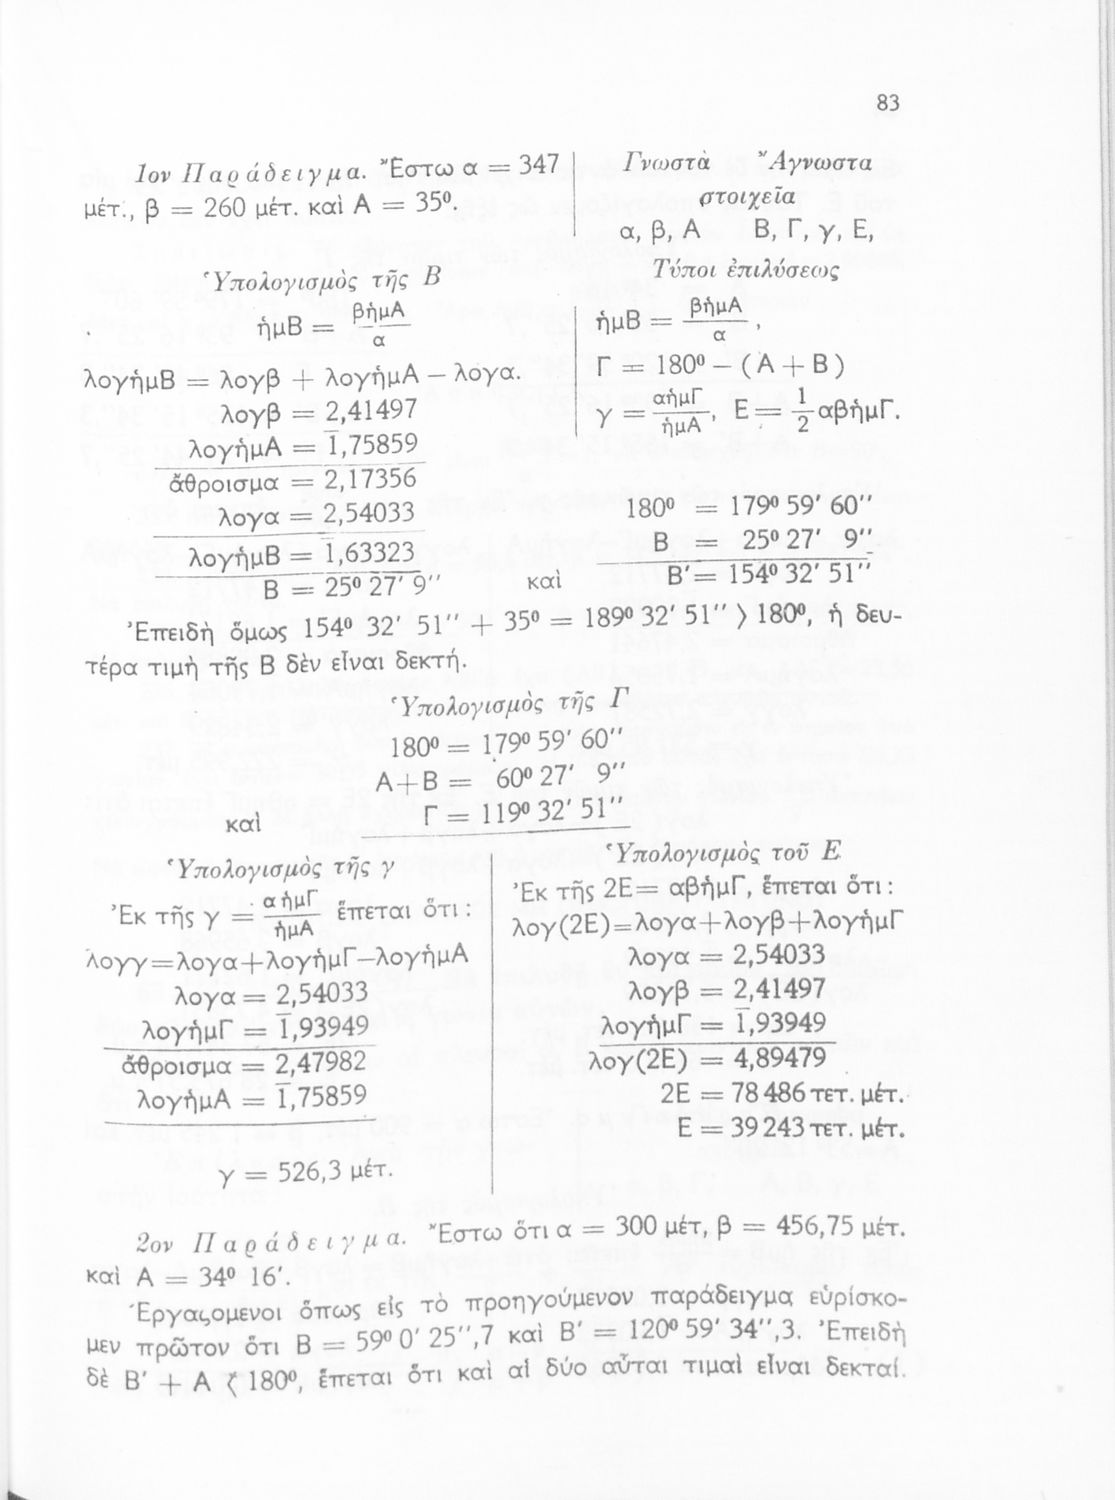 83
1ον Παράδειγμα. Ἔστω α = 347
μέτ., β = 260 μέτ. καὶ Α = 35⁰.
Γνωστὰ Ἄγνωστα
στοιχεῖα
α, β, Α Β, Γ, γ, Ε,
Ὑπολογισμὸς τῆς Β
ἡμΒ = βἡμΑ / α
λογἡμΒ = λογβ + λογἡμΑ – λογα.
λογβ = 2,41497
λογἡμΑ = 1̅,75859
ἄθροισμα = 2,17356
λογα = 2,54033
λογἡμΒ = 1̅,63323
Β = 25⁰ 27′ 9″
Τύποι ἐπιλύσεως
ἡμΒ = βἡμΑ / α ,
Γ = 180⁰ – (Α + Β)
γ = αἡμΓ / ἡμΑ , Ε = 1/2 αβἡμΓ.
180⁰ = 179⁰ 59′ 60″
Β = 25⁰ 27′ 9″
καὶ Β′ = 154⁰ 32′ 51″
Ἐπειδὴ ὅμως 154⁰ 32′ 51″ + 35⁰ = 189⁰ 32′ 51″ > 180⁰, ἡ δευ-
τέρα τιμὴ τῆς Β δὲν εἶναι δεκτή.
Ὑπολογισμὸς τῆς Γ
180⁰ = 179⁰ 59′ 60″
Α+Β = 60⁰ 27′ 9″
καὶ Γ = 119⁰ 32′ 51″
Ὑπολογισμὸς τῆς γ
Ἐκ τῆς γ = αἡμΓ / ἡμΑ ἕπεται ὅτι :
λογγ=λογα+λογἡμΓ–λογἡμΑ
λογα = 2,54033
λογἡμΓ = 1̅,93949
ἄθροισμα = 2,47982
λογἡμΑ = 1̅,75859
γ = 526,3 μέτ.
Ὑπολογισμὸς τοῦ Ε
Ἐκ τῆς 2Ε= αβἡμΓ, ἕπεται ὅτι :
λογ(2Ε)=λογα+λογβ+λογἡμΓ
λογα = 2,54033
λογβ = 2,41497
λογἡμΓ = 1̅,93949
λογ(2Ε) = 4,89479
2Ε = 78 486 τετ. μέτ.
Ε = 39 243 τετ. μέτ.
2ον Παράδειγμα. Ἔστω ὅτι α = 300 μέτ, β = 456,75 μέτ.
καὶ Α = 34⁰ 16′.
Ἐργαζόμενοι ὅπως εἰς τὸ προηγούμενον παράδειγμα εὑρίσκο-
μεν πρῶτον ὅτι Β = 59⁰ 0′ 25″,7 καὶ Β′ = 120⁰ 59′ 34″,3. Ἐπειδὴ
δὲ Β′ + Α < 180⁰, ἕπεται ὅτι καὶ αἱ δύο αὗται τιμαὶ εἶναι δεκταί.